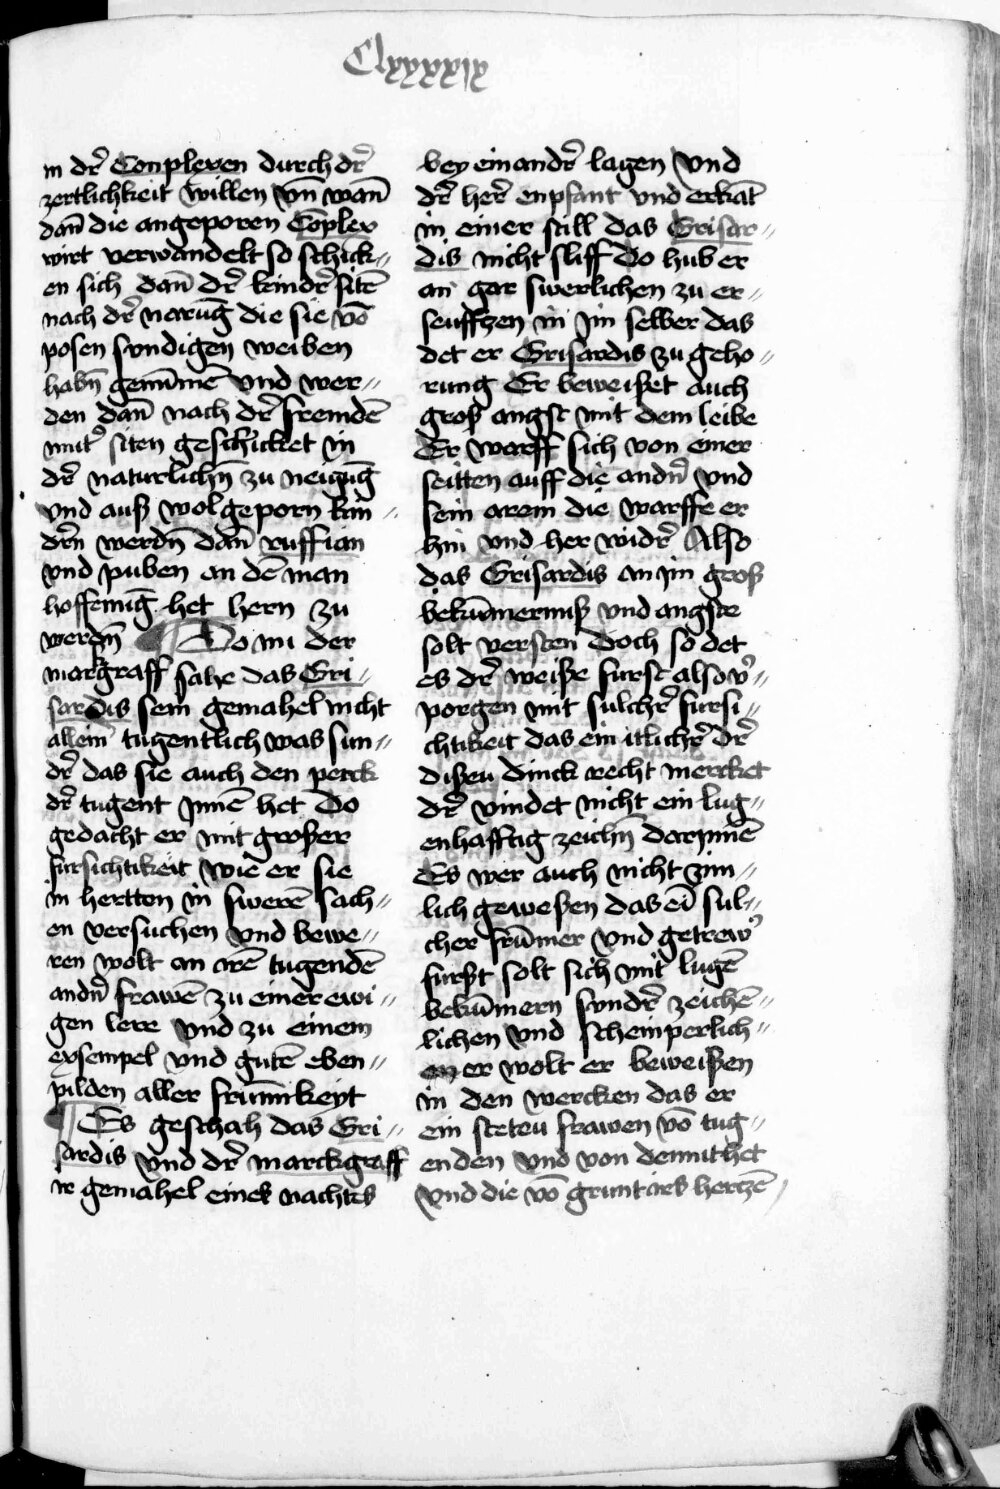 Clxxxxix
in dr̄ Conplexen durch dr̄
zertlichkeit willen vn̄ wan̄
dan̄ die angeporen Cōplex
wirt verwandelt so schick〃
en sich dan̄ dr̄ kindr̄ sitē
nach dr̄ narūg die sie vō
posen sundigen weiben
habn̄ genūmē vnd wer〃
den dan̄ nach dr̄ fremdē
mutr̄ siten geschicket in
dr̄ naturlichn̄ zu neigūg
vnd auß wolgeporn kin〃
drn̄ werdn̄ dan̄ ruffian
vnd puben an dē man
hoffenūg het hern zu
werdn̄ ¶ Do nu der
margraff sahe das Gri〃
sardis sein gemahel nicht
allein tugentlich was sun〃
dr̄ das sie auch den perck
dr̄ tugent ynnē het Do
gedacht er mit großer
fursichtikeit wie er sie
in hertten in swerē sach〃
en versuchen vnd bewe〃
ren wolt an irē tugendē
andn̄ frawē zu einer ewi〃
gen lere vnd zu einem
exsempel vnd gutē eben〃
pilden aller frūmkeyt
¶ Es geschah das Gri〃
sardis vnd dr̄ marckgraff
ir gemahel eines nachtes
bey einandr̄ lagen vnd
dr̄ her̄ enpfant vnd erkāt
in einer still das Grisar〃
dis nicht sliff Do hub er
an gar swerlichen zu er〃
seufftzen in ym selber das
det er Grisardis zu geho〃
rung Er beweißet auch
groß angst mit dem leibe
Er warff sich von einer
seitten auff die andr̄ vnd
sein arem die warffe er
hin vnd her widr̄ Also
das Grisardis an ym groß
bekūmernuß vnd angste
solt versten doch so det
es dr̄ weiße furst also v̄〃
porgen mit sulchr̄ fursi〃
chtikeit das ein itlichr̄ dr̄
dißeu dinck recht mercket
dr̄ vindet nicht ein lug〃
enhafftig zeichn̄ darynnē
Es wer auch nicht zim〃
lich geweßen das eī sul〃
cher frūmer vnd getrewr̄
furßt solt sich mit lugē
bekūmern sundr̄ zeichē〃
lichen vnd scheinperlich〃
en er wolt er beweißen
in den wercken das er
ein steteu frawen vō tug〃
enden vnd von demuthet
vnd die vō grunt irs hertzē